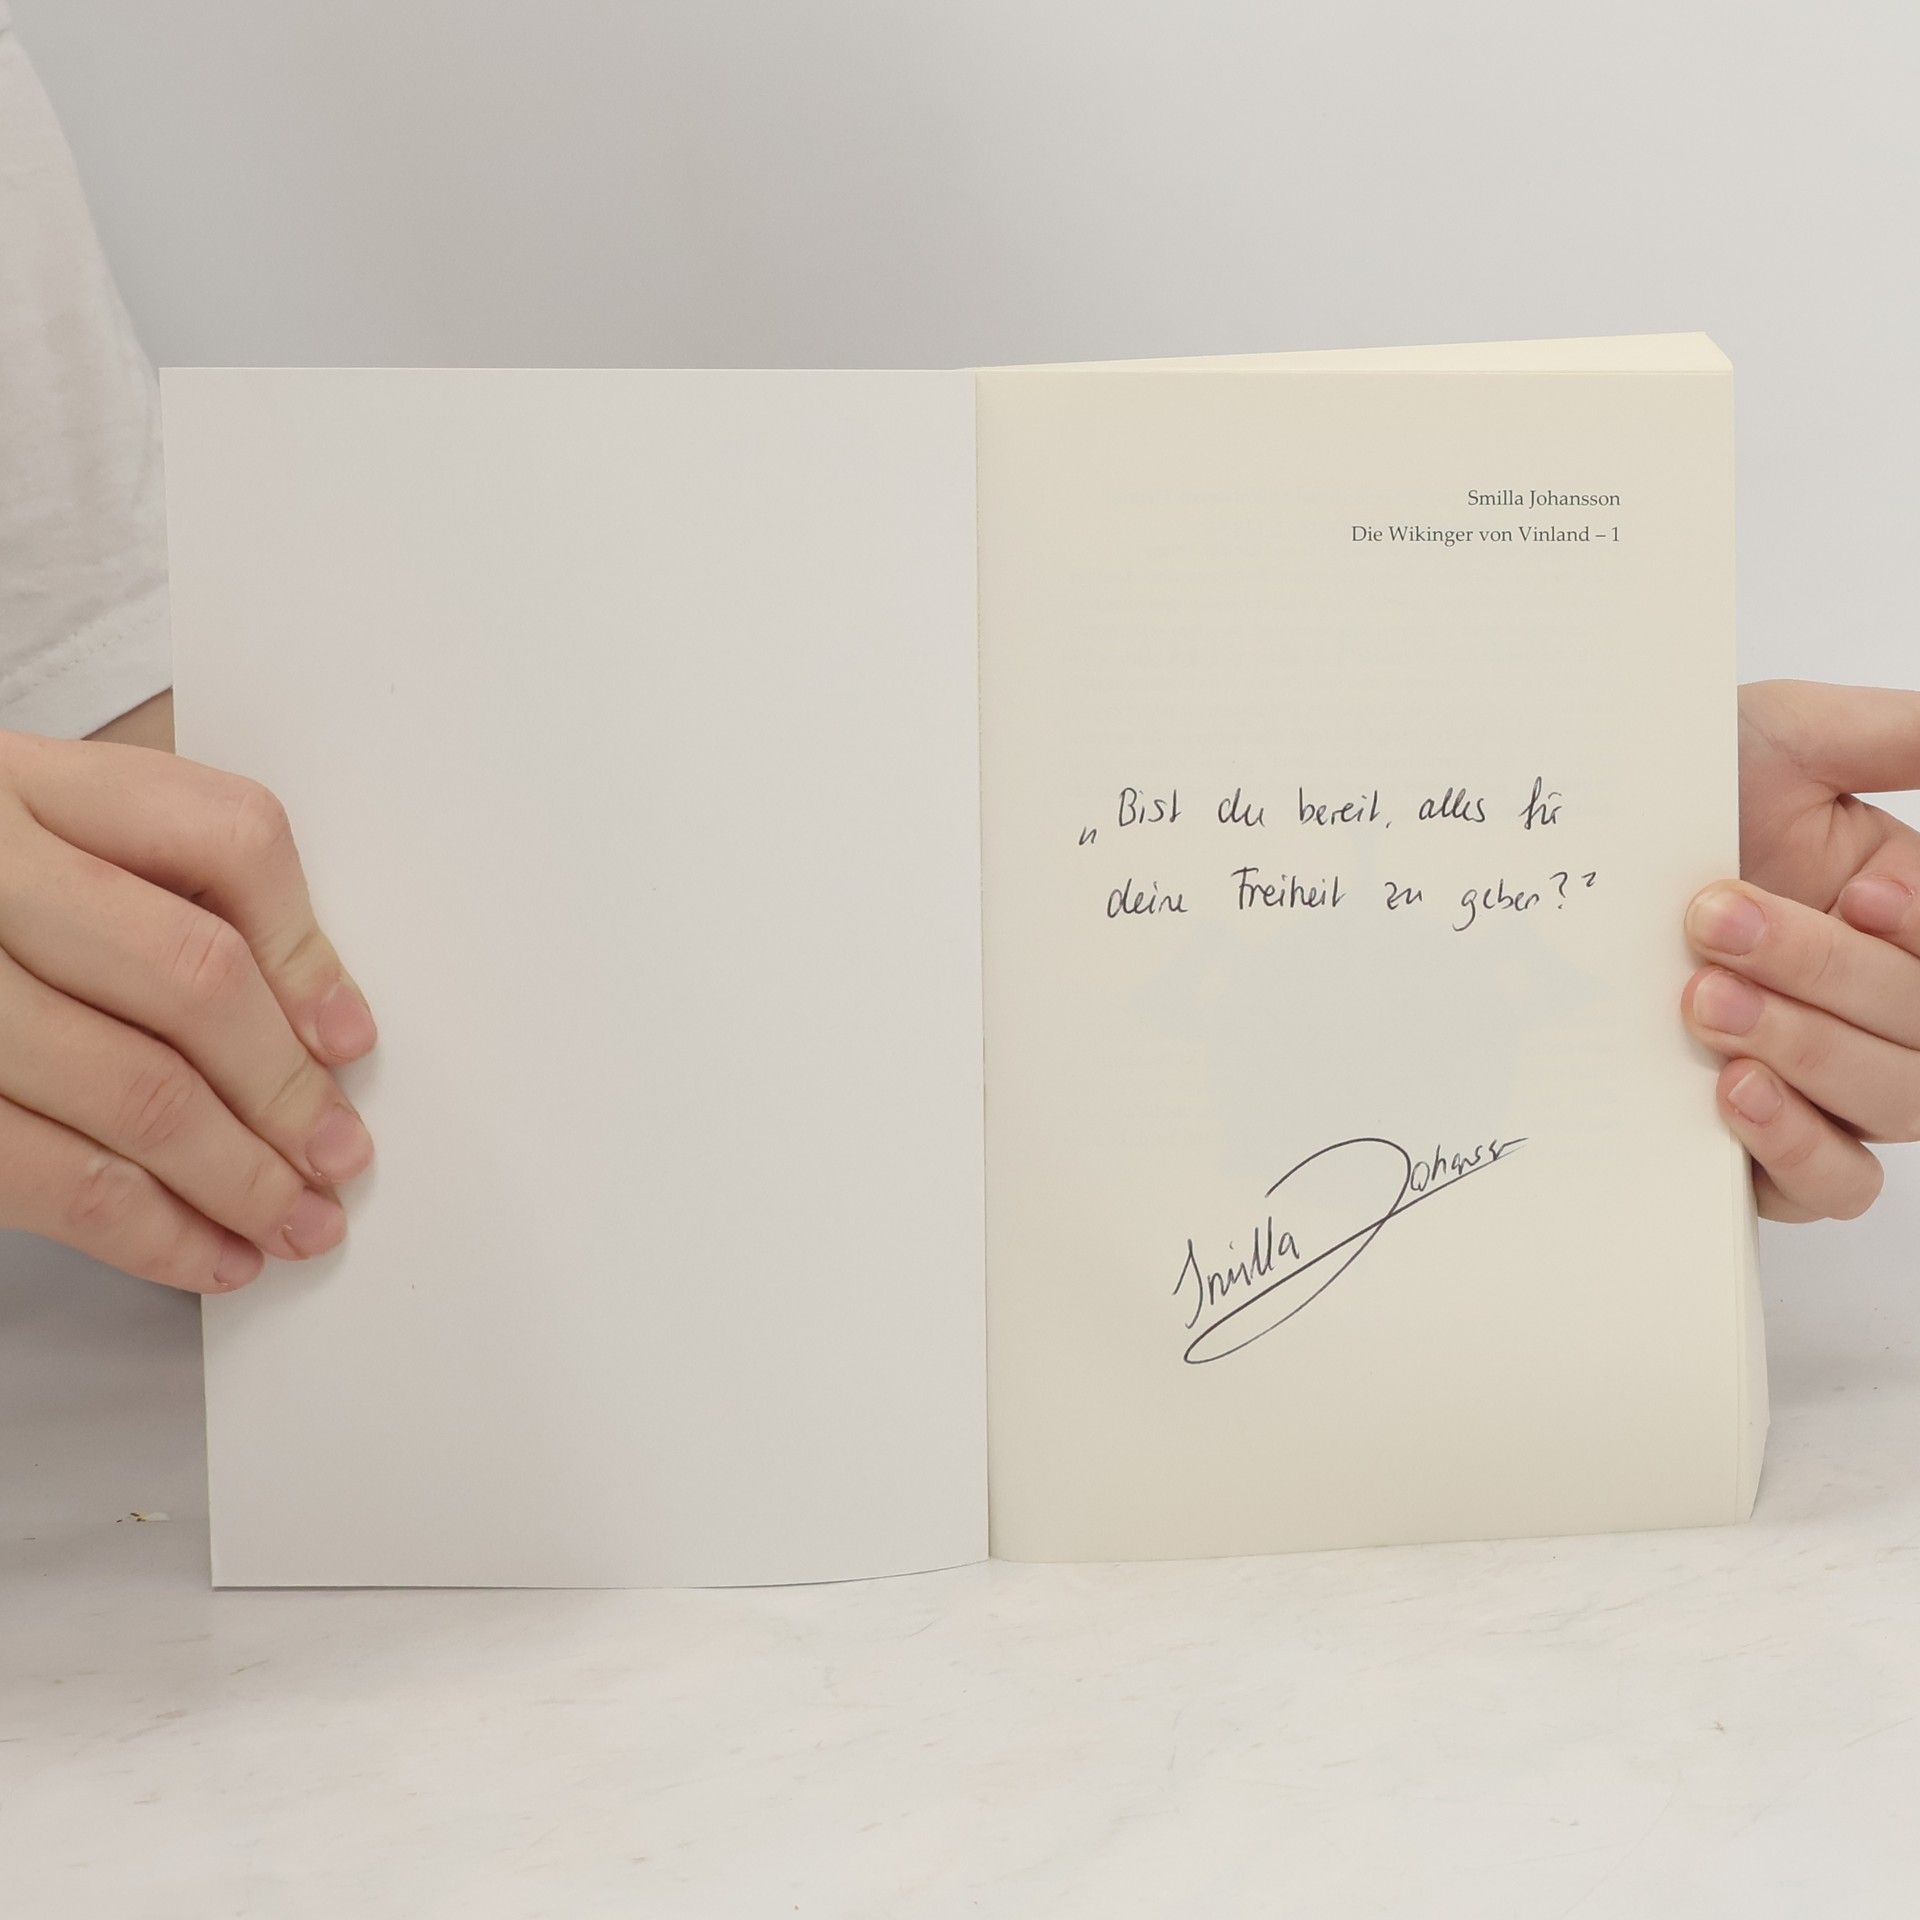 Smilla Johansson
Die Wikinger von Vinland – 1
„Bist du bereit, alles für
deine Freiheit zu geben?“
Smilla Johansson